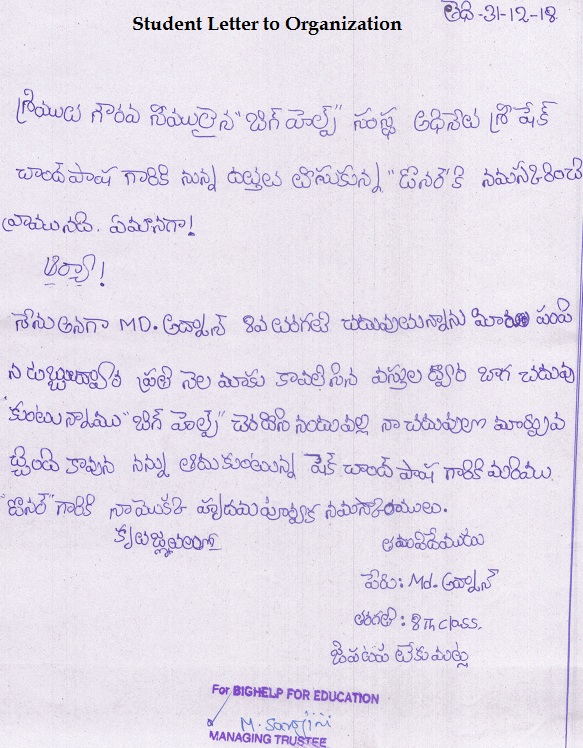 Student Letter to Organization
తేది-31-12-18
శ్రీయుత గౌరవ నీయులైన "బిగ్ హెల్ప్" సంస్థ అధినేత శ్రీ షేక్
చాంద్ పాష గారికి నున్న దత్తత తీసుకున్న "డొనర్" కి నమస్కరించి
వ్రాయునది. ఏమానగా!
ఆర్యా!
నేను అనగా MD. అద్నాన్ 8వ తరగతి చదువుతున్నాను మీరు పంపి
న డబ్బుద్వార ప్రతి నెల మాకు కావలసిన వస్తుల ద్వార బాగ చదువు
కుంటున్నాము "బిగ్ హెల్ప్" చెరదిసి నందువల్ల నా చదువులా మార్పువ
చ్చింది కావున నన్ను ఆదుకుంటున్న షేక్ చాంద్ పాష గారికి మరియు
"డొనర్" గారికి నాయొక్క హృదమపూర్వ్వక నమస్కారాములు.
కృతజ్ఞతలంతో
తమవిదేయుడు
పేరు: Md. అద్నాన్
తరగతి: 8th class.
జి.ప.ఉ.ప టేకుమట్ల
For BIGHELP FOR EDUCATION
M. Sarojini
MANAGING TRUSTEE